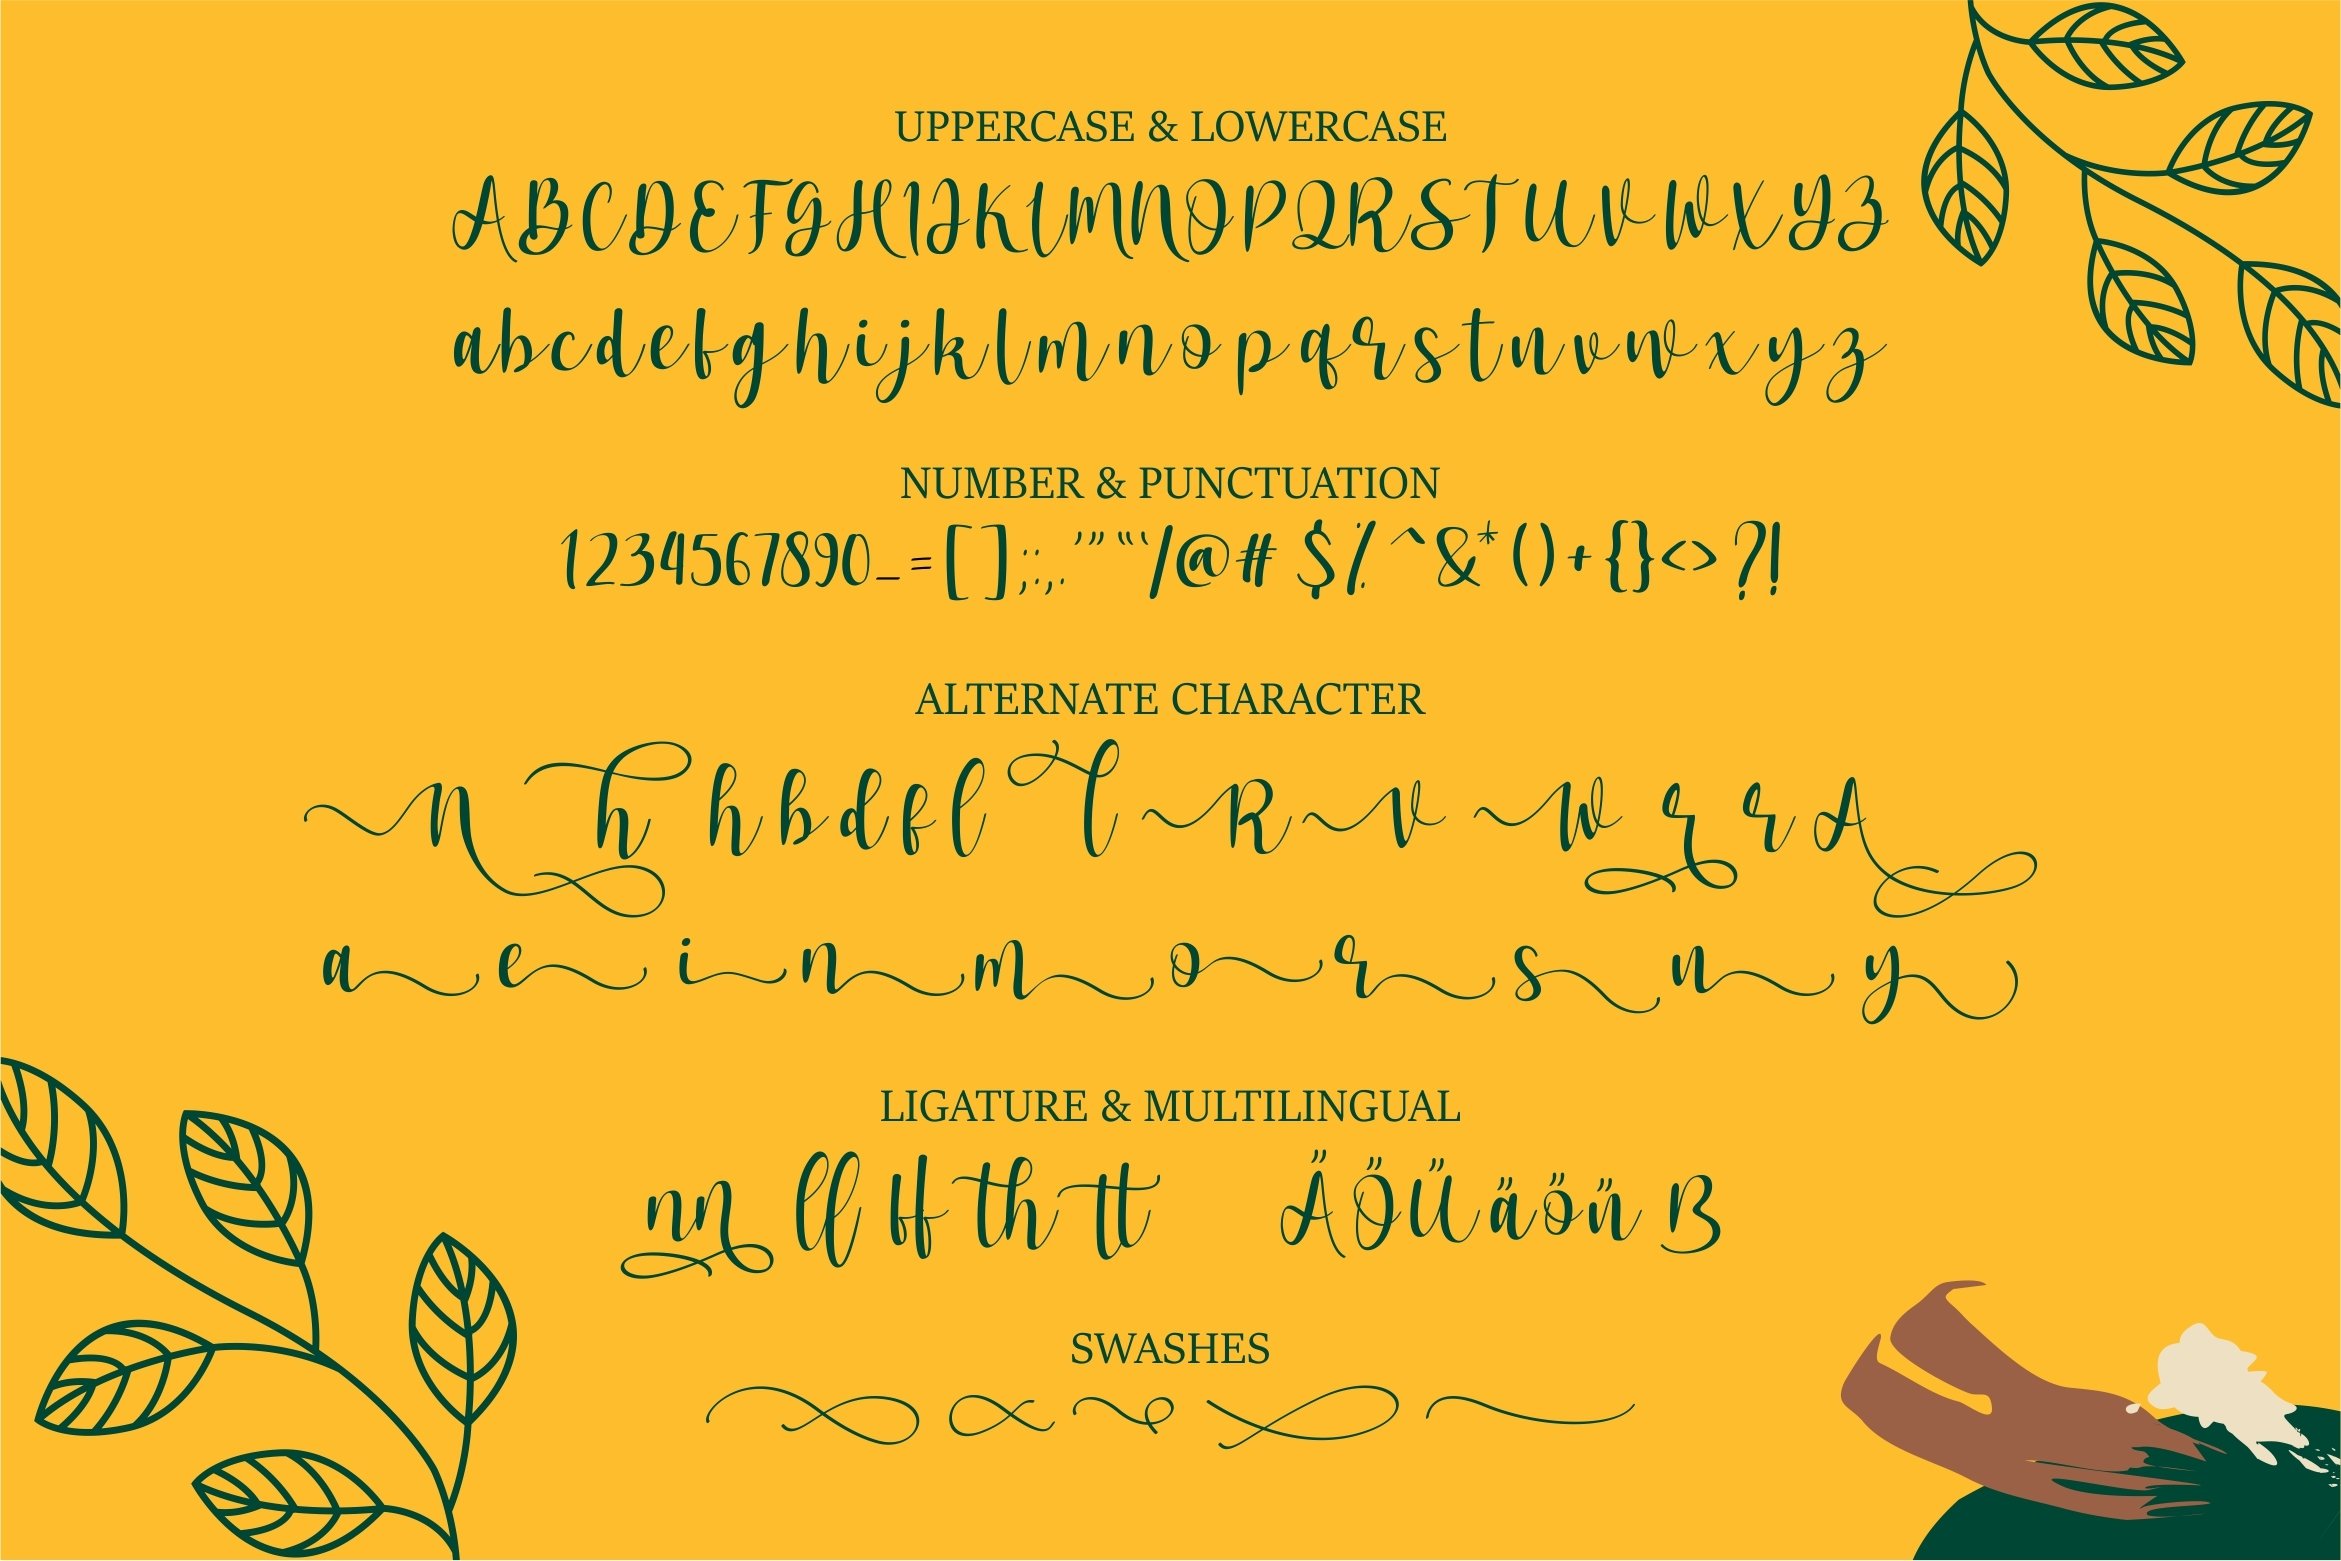 UPPERCASE & LOWERCASE
ABCDEFGHIJKLMNOPQRSTUVWXYZ
abcdefghijklmnopqrstuvwxyz
NUMBER & PUNCTUATION
1234567890_=[];:,.'"'"/@#$%^&*()+{}<>?!
ALTERNATE CHARACTER
n h h b d f l T R v w r r A
a e i n m o r s u y
LIGATURE & MULTILINGUAL
rr ll ff th tt ÄÖÜäöüß
SWASHES